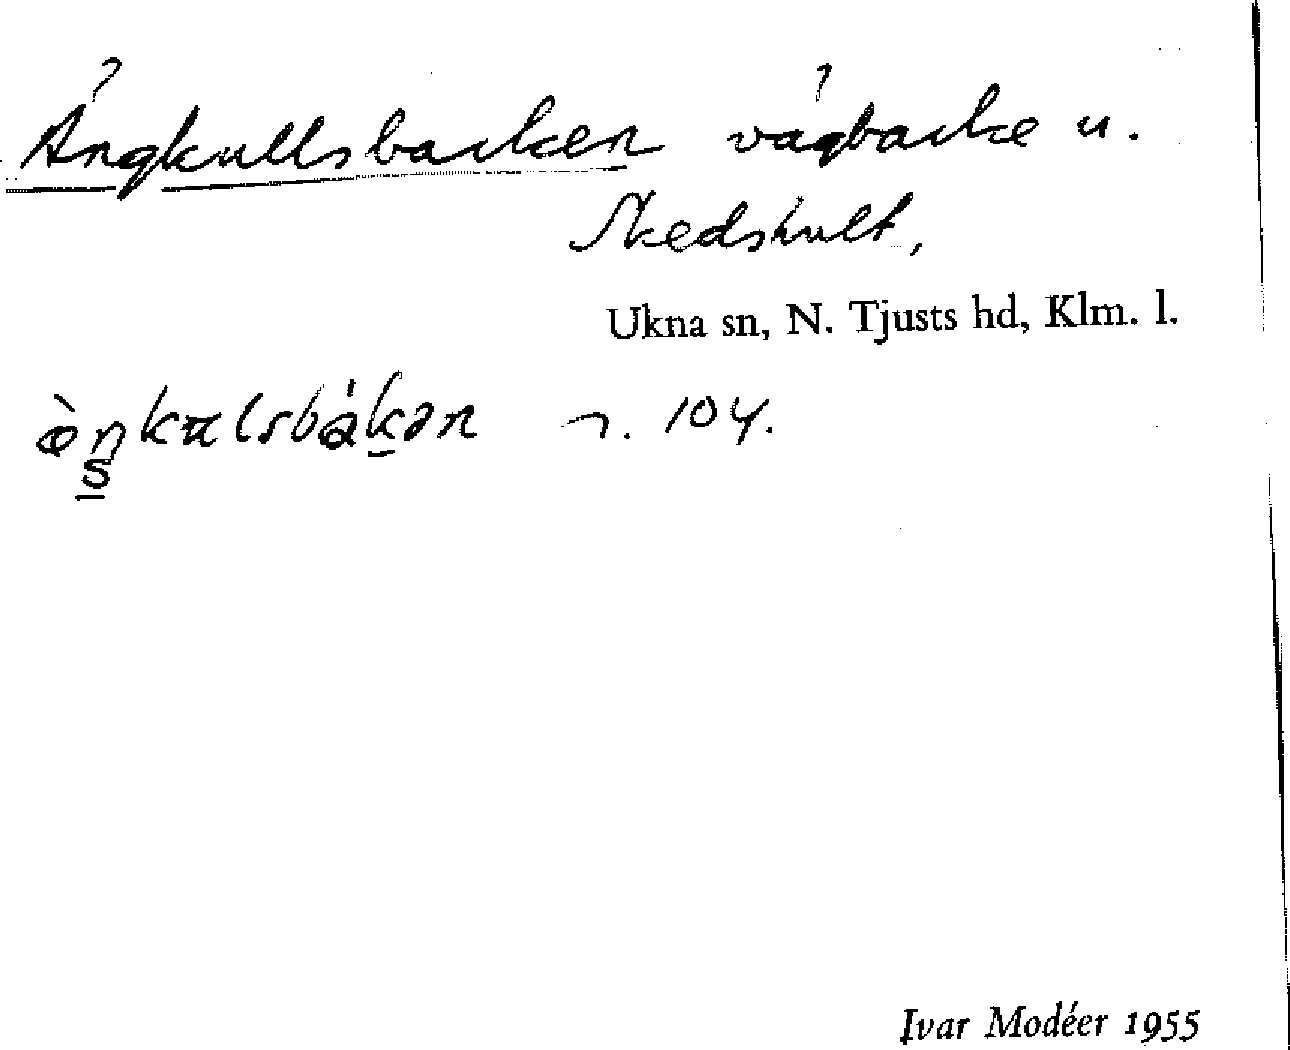 Ängkullsbacken vägbacke u.
Skedshult,
Ukna sn, N. Tjusts hd, Klm. l.
104.
Ivar Modéer 1955